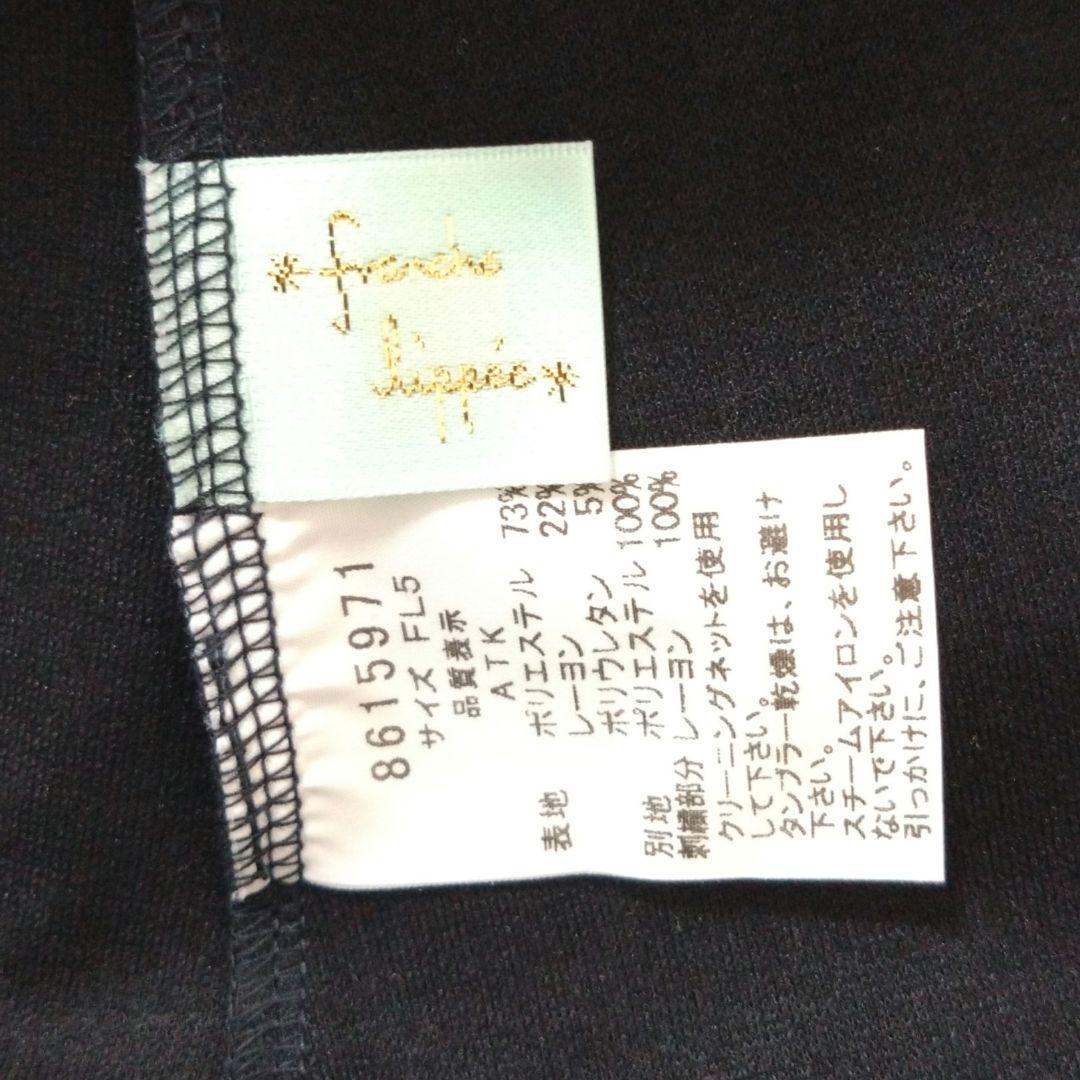 *franche
lippee*
8615971
サイズ FL5
品質表示
ATK
表地 ポリエステル 73%
レーヨン 22%
ポリウレタン 5%
別地 ポリエステル 100%
刺繍部分 レーヨン 100%
クリーニングネットを使用
して下さい。
タンブラー乾燥は、お避け
下さい。
スチームアイロンを使用し
ないで下さい。
引っかけに、ご注意下さい。